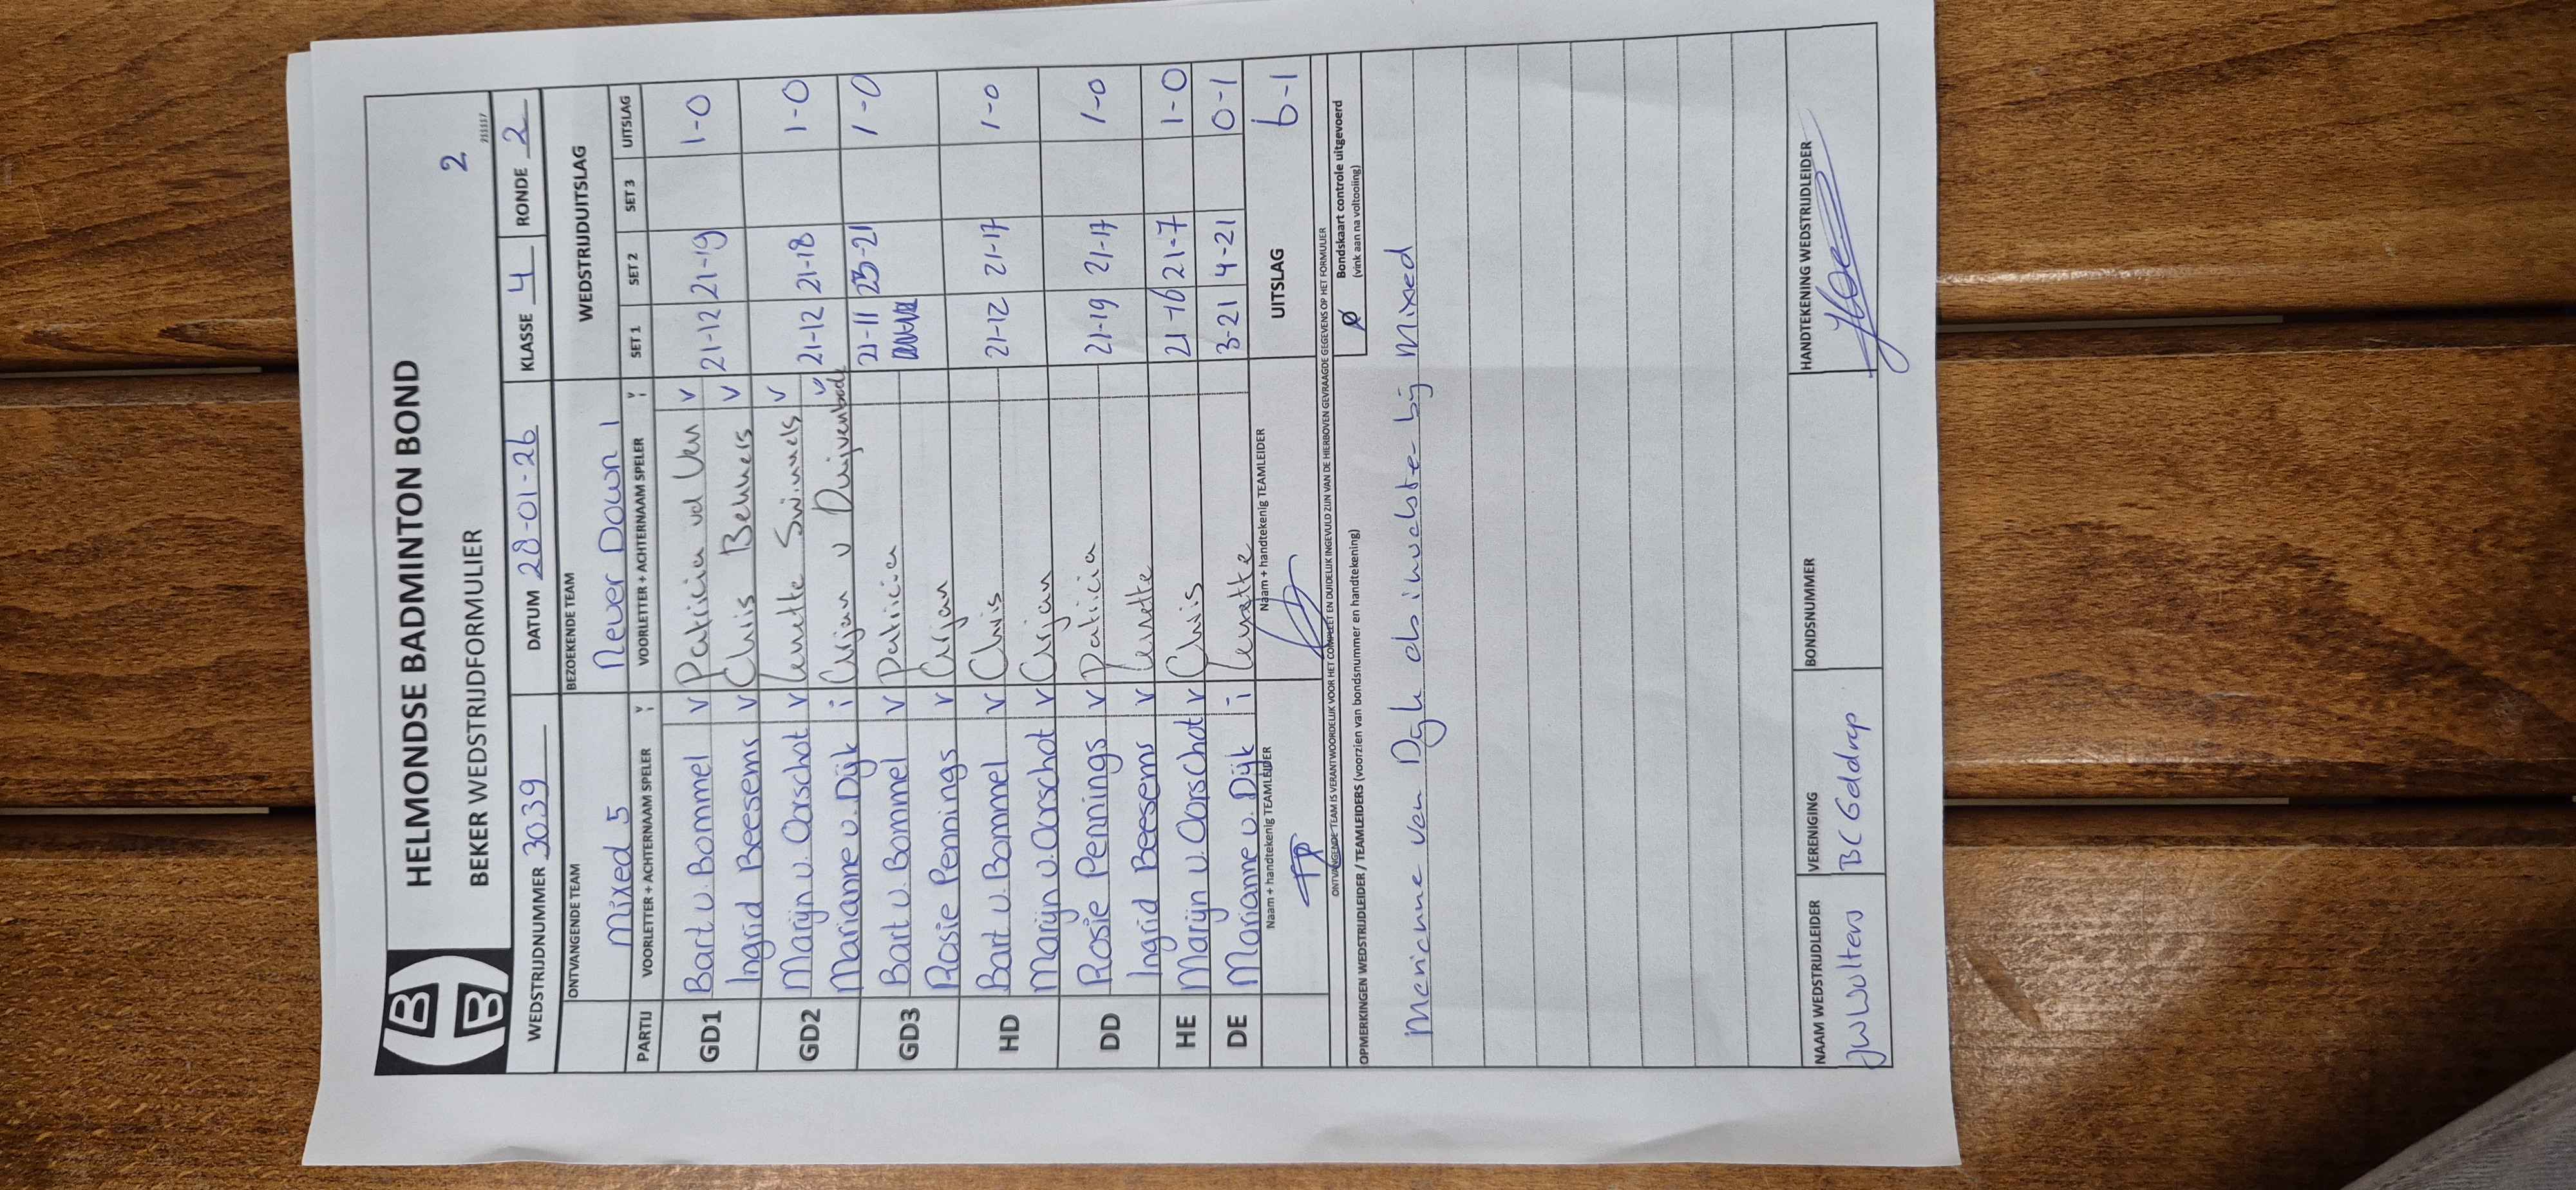 HELMONDSE BADMINTON BOND
BEKER WEDSTRIJDFORMULIER
2
WEDSTRIJDNUMMER 3039 DATUM 28-01-26 KLASSE 4 RONDE 2
ONTVANGENDE TEAM BEZOEKENDE TEAM WEDSTRIJDUITSLAG
Mixed 5 Never Down 1
PARTIJ VOORLETTER + ACHTERNAAM SPELER V I VOORLETTER + ACHTERNAAM SPELER V I SET 1 SET 2 SET 3 UITSLAG
GD1 Bart v. Bommel V Patricia vd Ven V 21-12 21-19 1-0
Ingrid Beesems V Chris Benners V
GD2 Marijn v. Oorschot V Lenette Swinnels V 21-12 21-18 1-0
Marianne v. Dijk i Arjan v Duijvenbode V
GD3 Bart v. Bommel V Patricia 21-11 23-21 1-0
Rosie Pennings V Arjan
HD Bart v. Bommel V Chris 21-12 21-17 1-0
Marijn v. Oorschot V Arjan
DD Rosie Pennings V Patricia 21-19 21-17 1-0
Ingrid Beesems V Lenette
HE Marijn v. Oorschot V Chris 21-16 21-7 1-0
DE Marianne v. Dijk i Lenette 3-21 4-21 0-1
Naam + handtekenig TEAMLEIDER Naam + handtekenig TEAMLEIDER UITSLAG 6-1
ONTVANGENDE TEAM IS VERANTWOORDELIJK VOOR HET COMPLEET EN DUIDELIJK INGEVULD ZIJN VAN DE HIERBOVEN GEVRAAGDE GEGEVENS OP HET FORMULIER
Bondskaart controle uitgevoerd
(vink aan na voltooiing)
OPMERKINGEN WEDSTRIJDLEIDER / TEAMLEIDERS (voorzien van bondsnummer en handtekening)
Marianne van Dijk als invalster bij Mixed
NAAM WEDSTRIJDLEIDER VERENIGING BONDSNUMMER HANDTEKENING WEDSTRIJDLEIDER
JW Wulters BC Geldrop